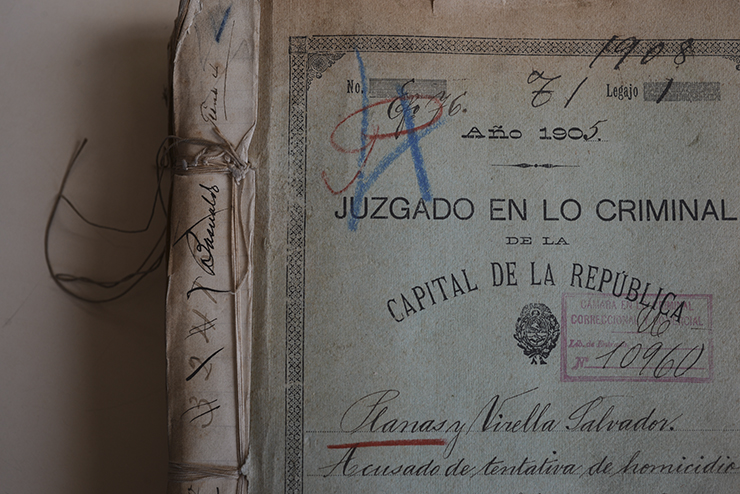 1908
No. 71 Legajo 1
Año 1905.
JUZGADO EN LO CRIMINAL
DE LA
CAPITAL DE LA REPÚBLICA
CÁMARA EN LO CRIMINAL
CORRECCIONAL
Nº 10960
Planas y Virella Salvador.
Acusado de tentativa de homicidio